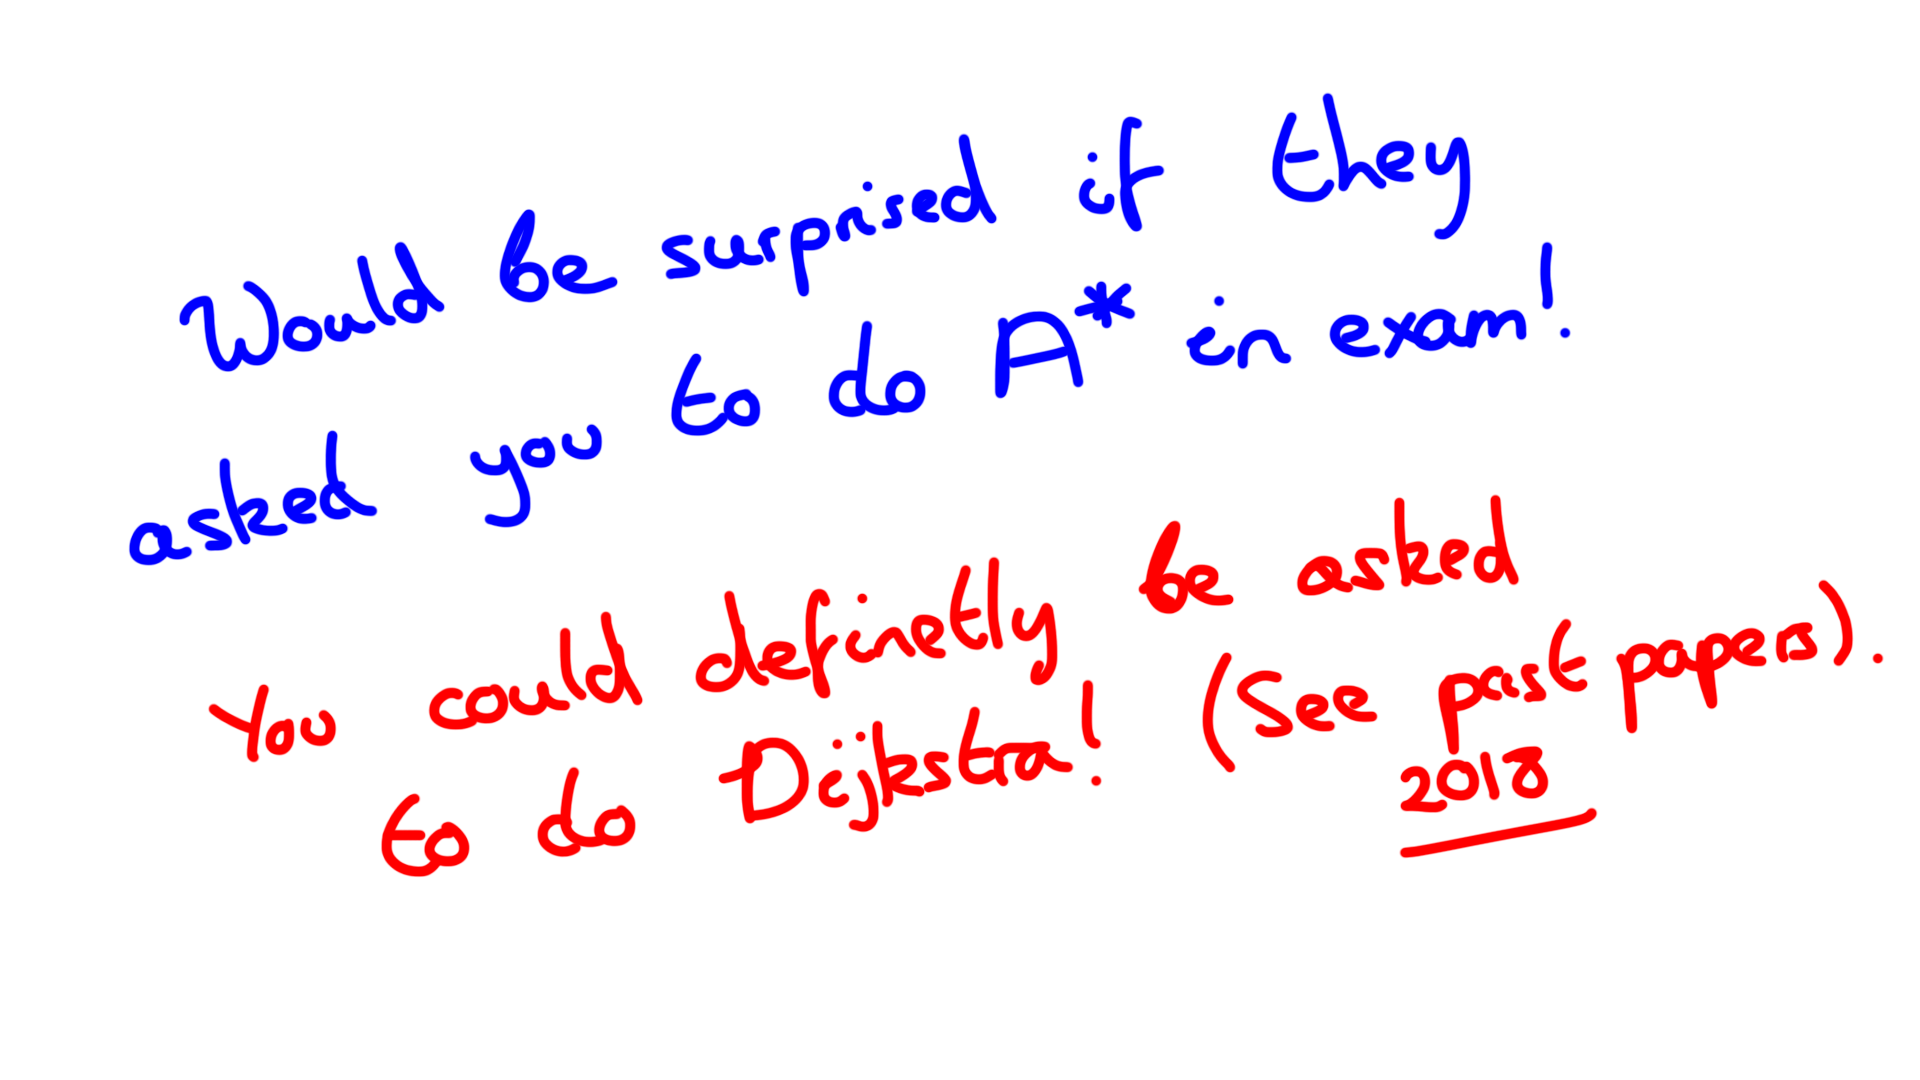 Would be surprised if they
asked you to do A* in exam!
You could definetly be asked
to do Dijkstra! (See past papers).
2018